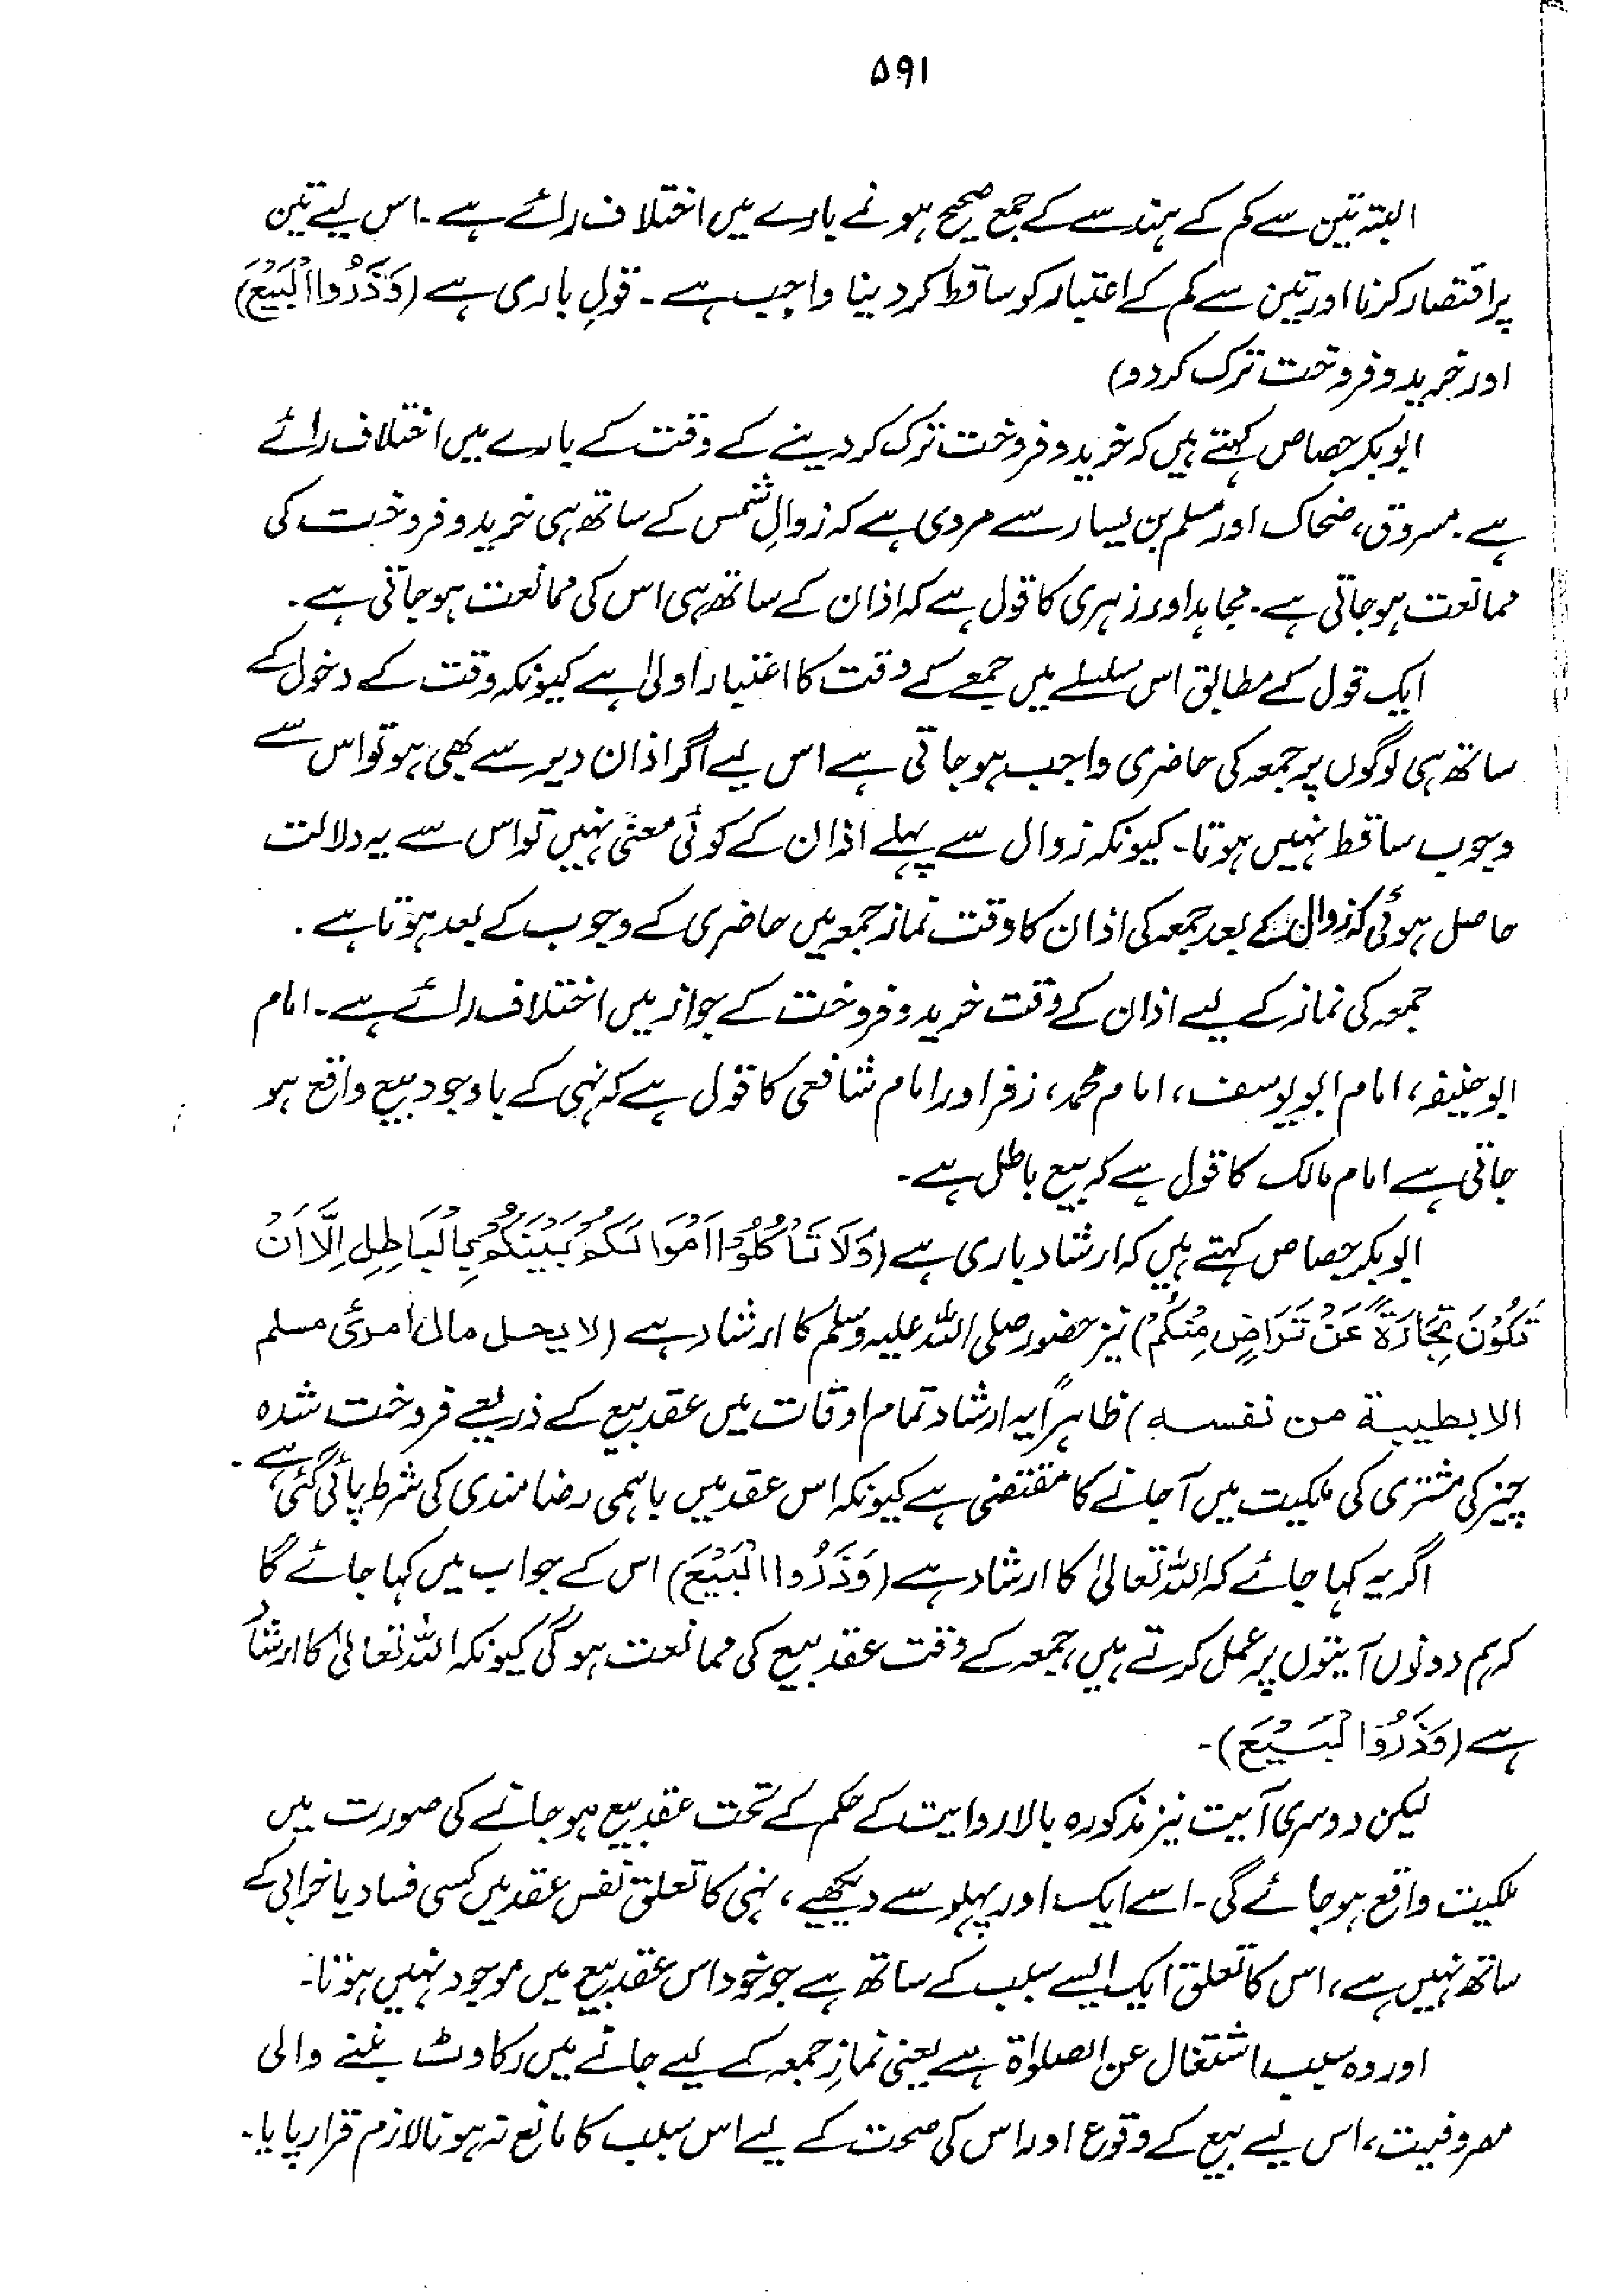 ۵۹۱
البتہ تین سے کم کے ہندسے کے جمع صحیح ہونے بارے میں اختلاف رائے ہے۔ اس لیے تین
پر اقتصار کرنا اور تین سے کم کے اعتبار کو ساقط کر دینا واجب ہے۔ قولِ باری ہے (وَذَرُوا الْبَيْعَ)
اور خرید و فروخت ترک کر دو)
ابوبکر جصاص کہتے ہیں کہ خرید و فروخت ترک کر دینے کے وقت کے بارے میں اختلاف رائے
ہے۔ مسروق، ضحاک اور مسلم بن یسار سے مروی ہے کہ زوالِ شمس کے ساتھ ہی خرید و فروخت کی
ممانعت ہو جاتی ہے۔ مجاہد اور زہری کا قول ہے کہ اذان کے ساتھ ہی اس کی ممانعت ہو جاتی ہے۔
ایک قول کے مطابق اس سلسلے میں جمعے کے وقت کا اعتبار اولیٰ ہے کیونکہ وقت کے دخول کے
ساتھ ہی لوگوں پر جمعہ کی حاضری واجب ہو جاتی ہے اس لیے اگر اذان دیر سے بھی ہو تو اس سے
وجوب ساقط نہیں ہوتا۔ کیونکہ زوال سے پہلے اذان کے کوئی معنی نہیں تو اس سے یہ دلالت
حاصل ہوئی کہ زوال کے بعد جمعہ کی اذان کا وقت نماز جمعہ میں حاضری کے وجوب کے بعد ہوتا ہے۔
جمعہ کی نماز کے لیے اذان کے وقت خرید و فروخت کے جواز میں اختلاف رائے ہے۔ امام
ابوحنیفہ، امام ابویوسف، امام محمد، زفر اور امام شافعی کا قول ہے کہ نہی کے باوجود بیع واقع ہو
جاتی ہے امام مالک کا قول ہے کہ بیع باطل ہے۔
ابوبکر جصاص کہتے ہیں کہ ارشاد باری ہے (وَلَا تَأْكُلُوْا اَمْوَالَكُمْ بَيْنَكُمْ بِالْبَاطِلِ اِلَّا اَنْ
تَكُوْنَ تِجَارَةً عَنْ تَرَاضٍ مِنْكُمْ) نیز حضور صلی اللہ علیہ وسلم کا ارشاد ہے (لا يحل مال امرئ مسلم
الا بطيبة من نفسه) ظاہراً یہ ارشاد تمام اوقات میں عقد بیع کے ذریعے فروخت شدہ
چیز کی مشتری کی ملکیت میں آجانے کا مقتضی ہے کیونکہ اس عقد میں باہمی رضامندی کی شرط پائی گئی ہے۔
اگر یہ کہا جائے کہ اللہ تعالیٰ کا ارشاد ہے (وَذَرُوا الْبَيْعَ) اس کے جواب میں کہا جائے گا
کہ ہم دونوں آیتوں پر عمل کرتے ہیں، جمعہ کے وقت عقد بیع کی ممانعت ہوگی کیونکہ اللہ تعالیٰ کا ارشاد
ہے (وَذَرُوا الْبَيْعَ)۔
لیکن دوسری آیت نیز مذکورہ بالا روایت کے حکم کے تحت عقد بیع ہو جانے کی صورت میں
ملکیت واقع ہو جائے گی۔ اسے ایک اور پہلو سے دیکھیے، نہی کا تعلق نفس عقد میں کسی فساد یا خرابی کے
ساتھ نہیں ہے، اس کا تعلق ایک ایسے سبب کے ساتھ ہے جو خود اس عقد بیع میں موجود نہیں ہوتا۔
اور وہ سبب اشتغال عن الصلوٰۃ ہے یعنی نمازِ جمعہ کے لیے جانے میں رکاوٹ بننے والی
مصروفیت، اس لیے بیع کے وقوع اور اس کی صحت کے لیے اس سبب کا مانع نہ ہونا لازم قرار پایا۔